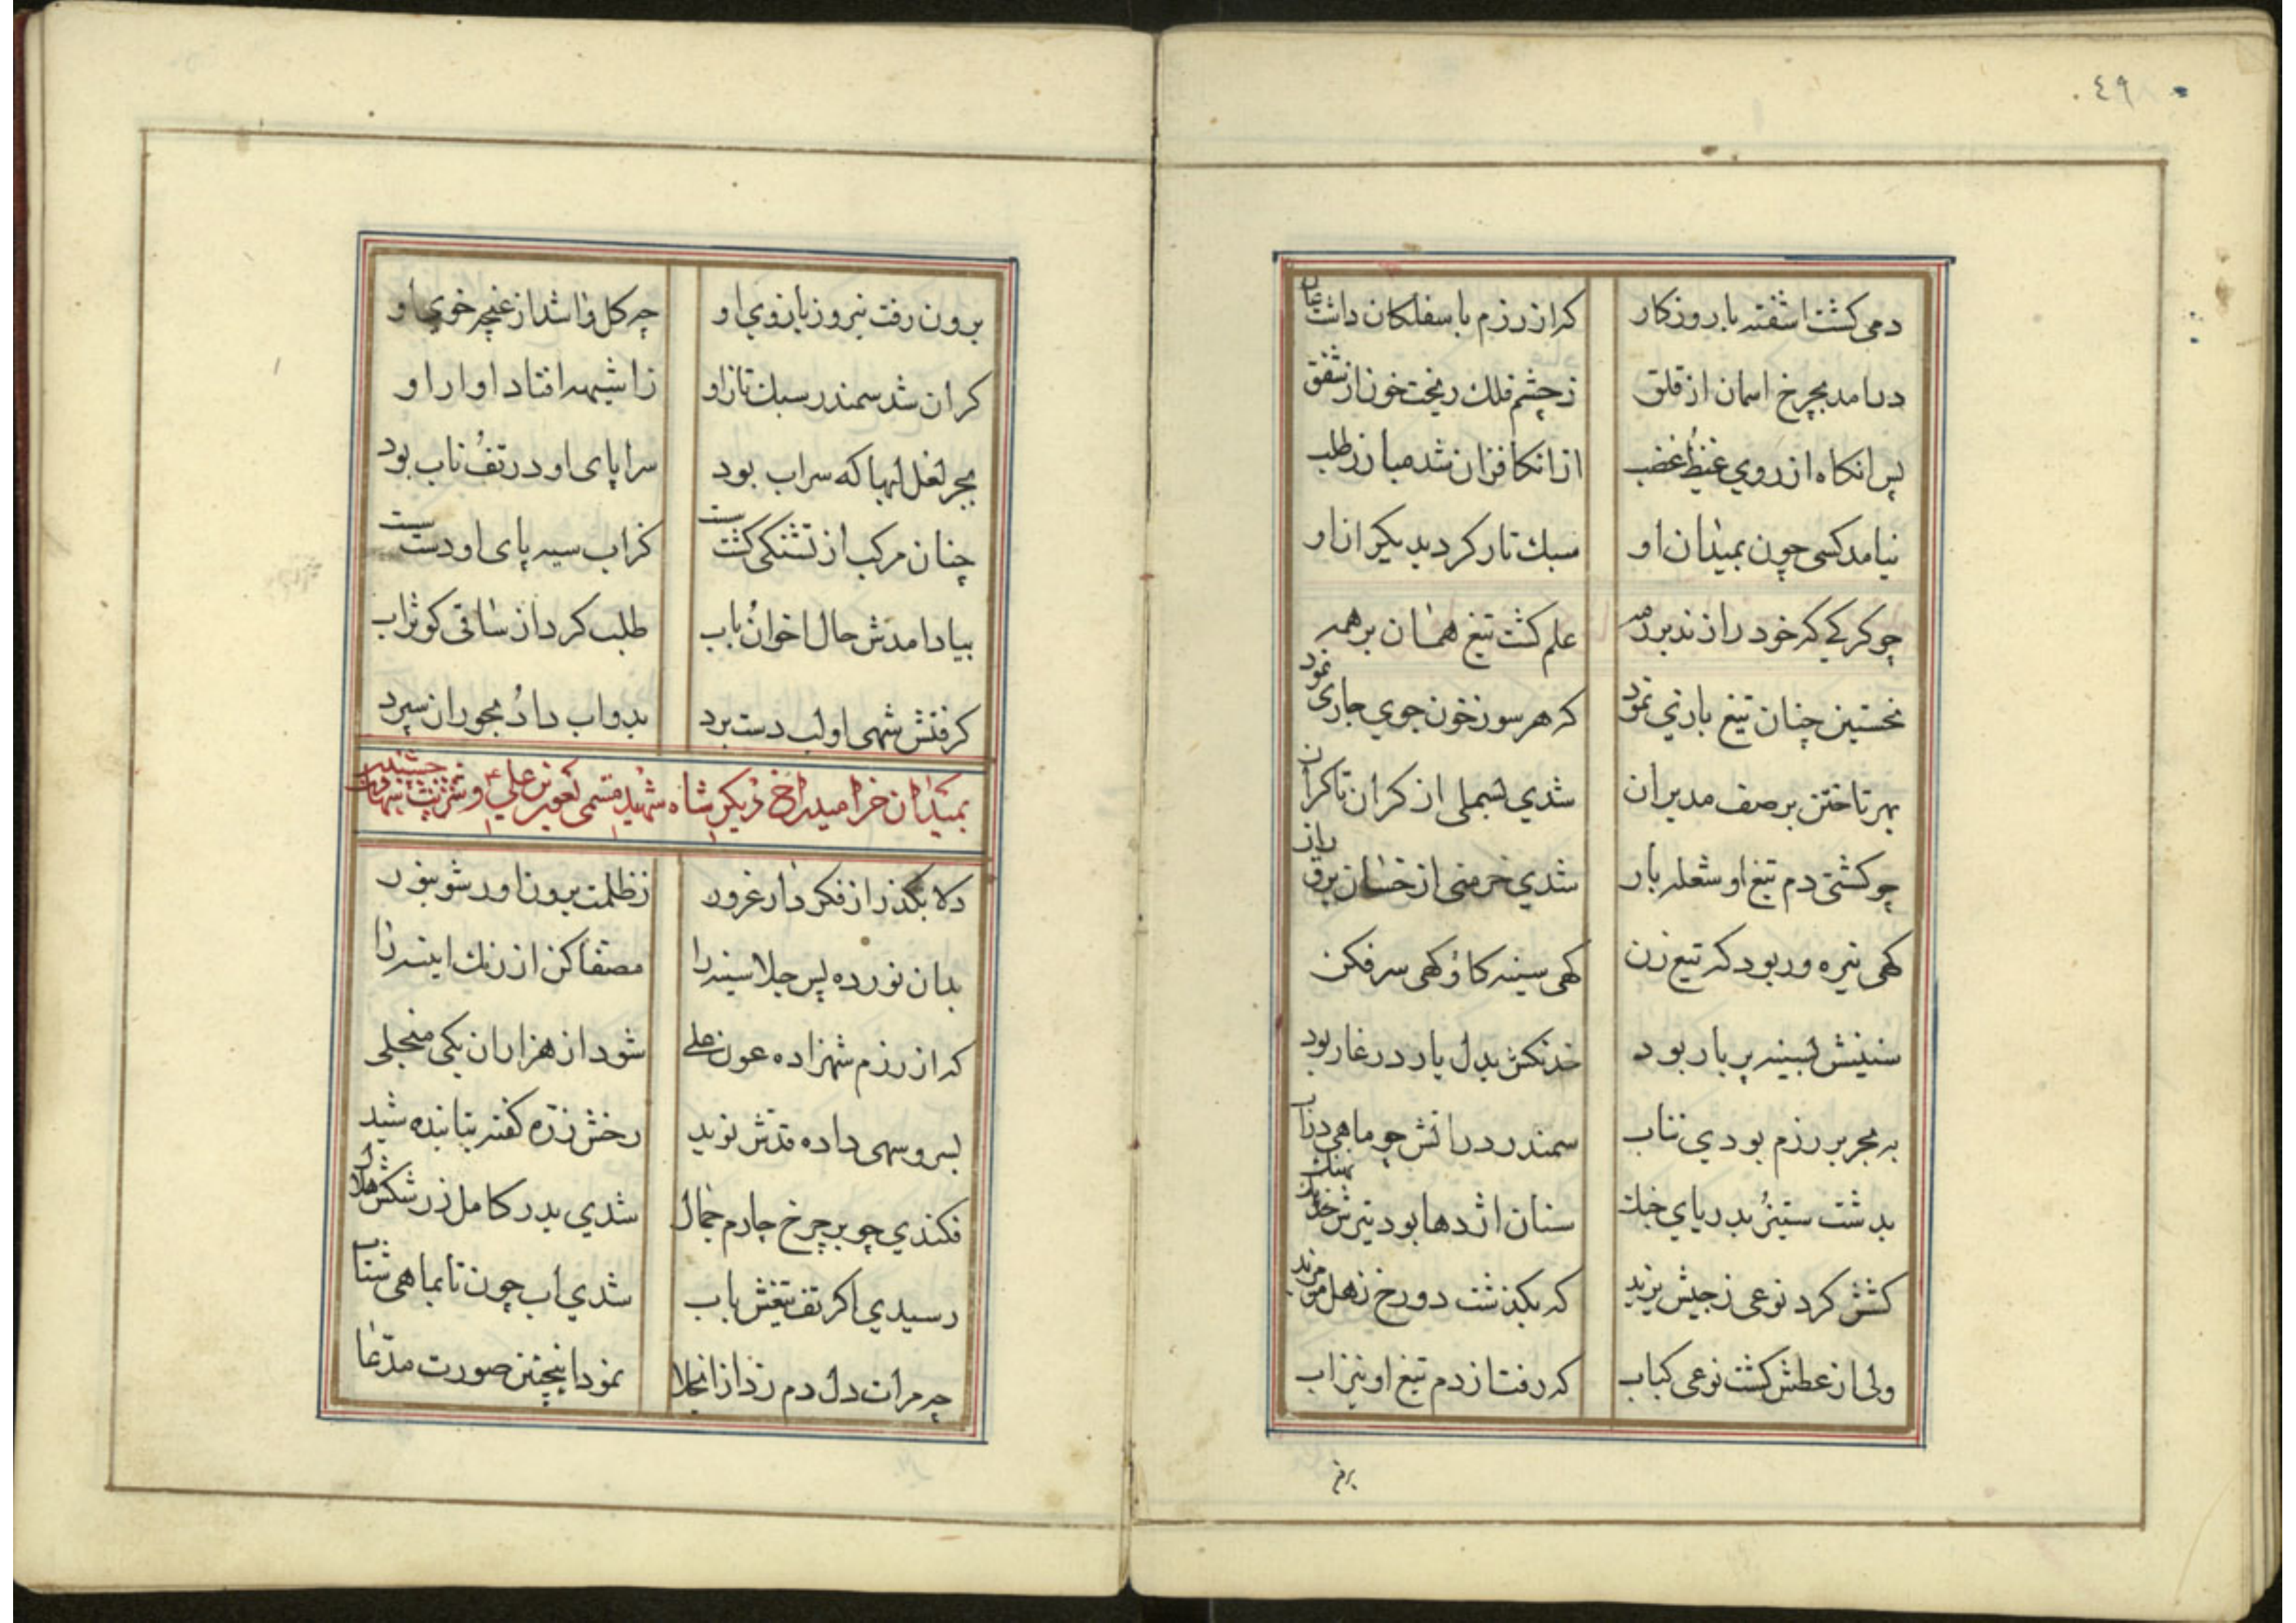 ٤٩
دمی کشت اشفته با روزکار که از رزم با سفلکان داشت عار
درامد بچرخ اسمان از قلق ز چشم فلک ریخت خون از شفق
پس انکاه از روي غیظ و غضب از ان کافران شد مبارز طلب
نیامد کسی چون بمیدان او سبک تاز کردید یکران او
چو کرکی که خود را زند بر رمه علم کشت تیغ همان بر همه
نخستین چنان تیغ بازي نمود که هر سو ز خون جوي جاری نمود
بهر تاختن بر صف مدبران شدي بسملی از کران تا کران
چو کشتی دم تیغ او شعله بار شدي خرمنی از خسان برق
کهی نیزه ور بود که تیغ زن کهی سینه کاو کهی سر فکن
سنینش بسینه پر بار بود خدنکش بدل یار در غار بود
به مجر رزم بودي بتاب سمندر در اتش چو ماهی در اب
بدشت ستیز بدریاي جنک سنان اژدها بود تیرش نهنک
کشش کرد نوعی ز جیش یزید که بکذشت دوزخ ز هل من مزید
ولی از عطش کشت نوعی کباب که رفت از دم تیغ او نیز اب
برون
برون رفت نیروز بازوي او چه کل واشد از غنچه خوي او
کران شد سمندر سبک تاز او ز اشیهه افتاد اوار او
بجر لعل لبها که سراب بود سراپای او در تف و تاب بود
چنان مرکب از تشنکی کشت سست کز اب سیه پای او دست شست
بیاد امدش حال اخوان و باب طلب کرد از ساقی کوثر اب
کرفتش شهی اولب دست برد بدو اب داد و بحوران سپرد
بمیدان خرامیدن دیکر شاه شهید مسمی بعون علی و شربت شهادت چشیدن
دلا بکذر از فکر دار غرور ز ظلمت برون اور شو بنور
بدان نور ده پس جلا سینه را مصفا کن از زنک اینه را
که از رزم شهزاده عون علی شود از هزاران یکی منجلی
بسرو سهی داده قدش نوید رخش ذره کفته بتابنده شید
فکندي چو بر چرخ چارم جمال شدي بدر کامل ز رشکش هلال
رسیدي اکر تف تیغش باب شدي اب چون تابما هی شتاب
چه مرات دل دم زد از انجلا نمود اینچنین صورت مدعا